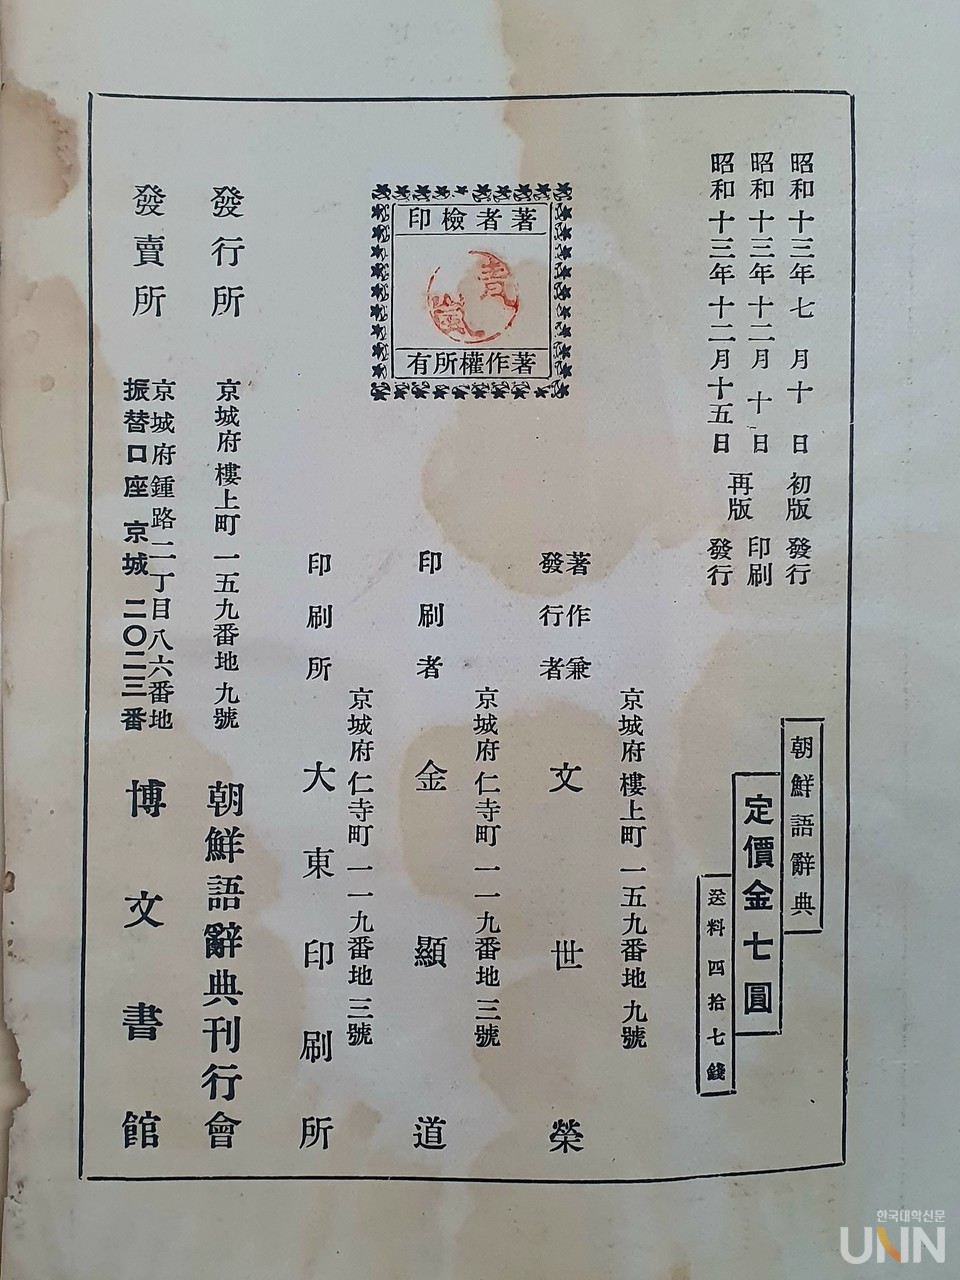 昭和十三年七月十日 初版發行
昭和十三年十二月十日 再版印刷
昭和十三年十二月十五日 發行
朝鮮語辭典
定價金七圓
送料四拾七錢
著者檢印
靑嵐
著作權所有
京城府樓上町一五九番地九號
著作兼發行者 文世榮
京城府仁寺町一一九番地三號
印刷者 金顯道
京城府仁寺町一一九番地三號
印刷所 大東印刷所
發行所 京城府樓上町一五九番地九號 朝鮮語辭典刊行會
發賣所 京城府鍾路二丁目八六番地
振替口座京城二〇二三番 博文書館
한국대학신문
UNN